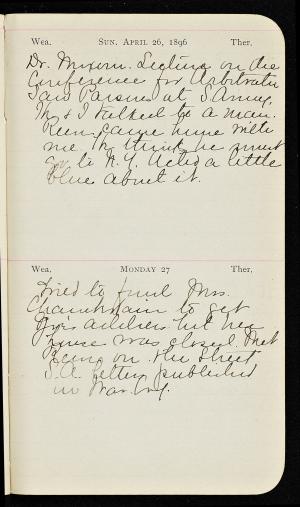 Wea. SUN. APRIL 26, 1896 Ther.
Dr. Mixom. Lecture on the
Conference for Arbitration
Saw Parsons at S Army,
Th & I talked to a man.
Keen came home with
me. Th thinks he must
go to N.Y. Acted a little
blue about it.
Wea. MONDAY 27 Ther.
Tried to find Mrs.
Chamberlain to get
address but her
house was closed. Met
on the street
S.A. letter published
in War Cry.